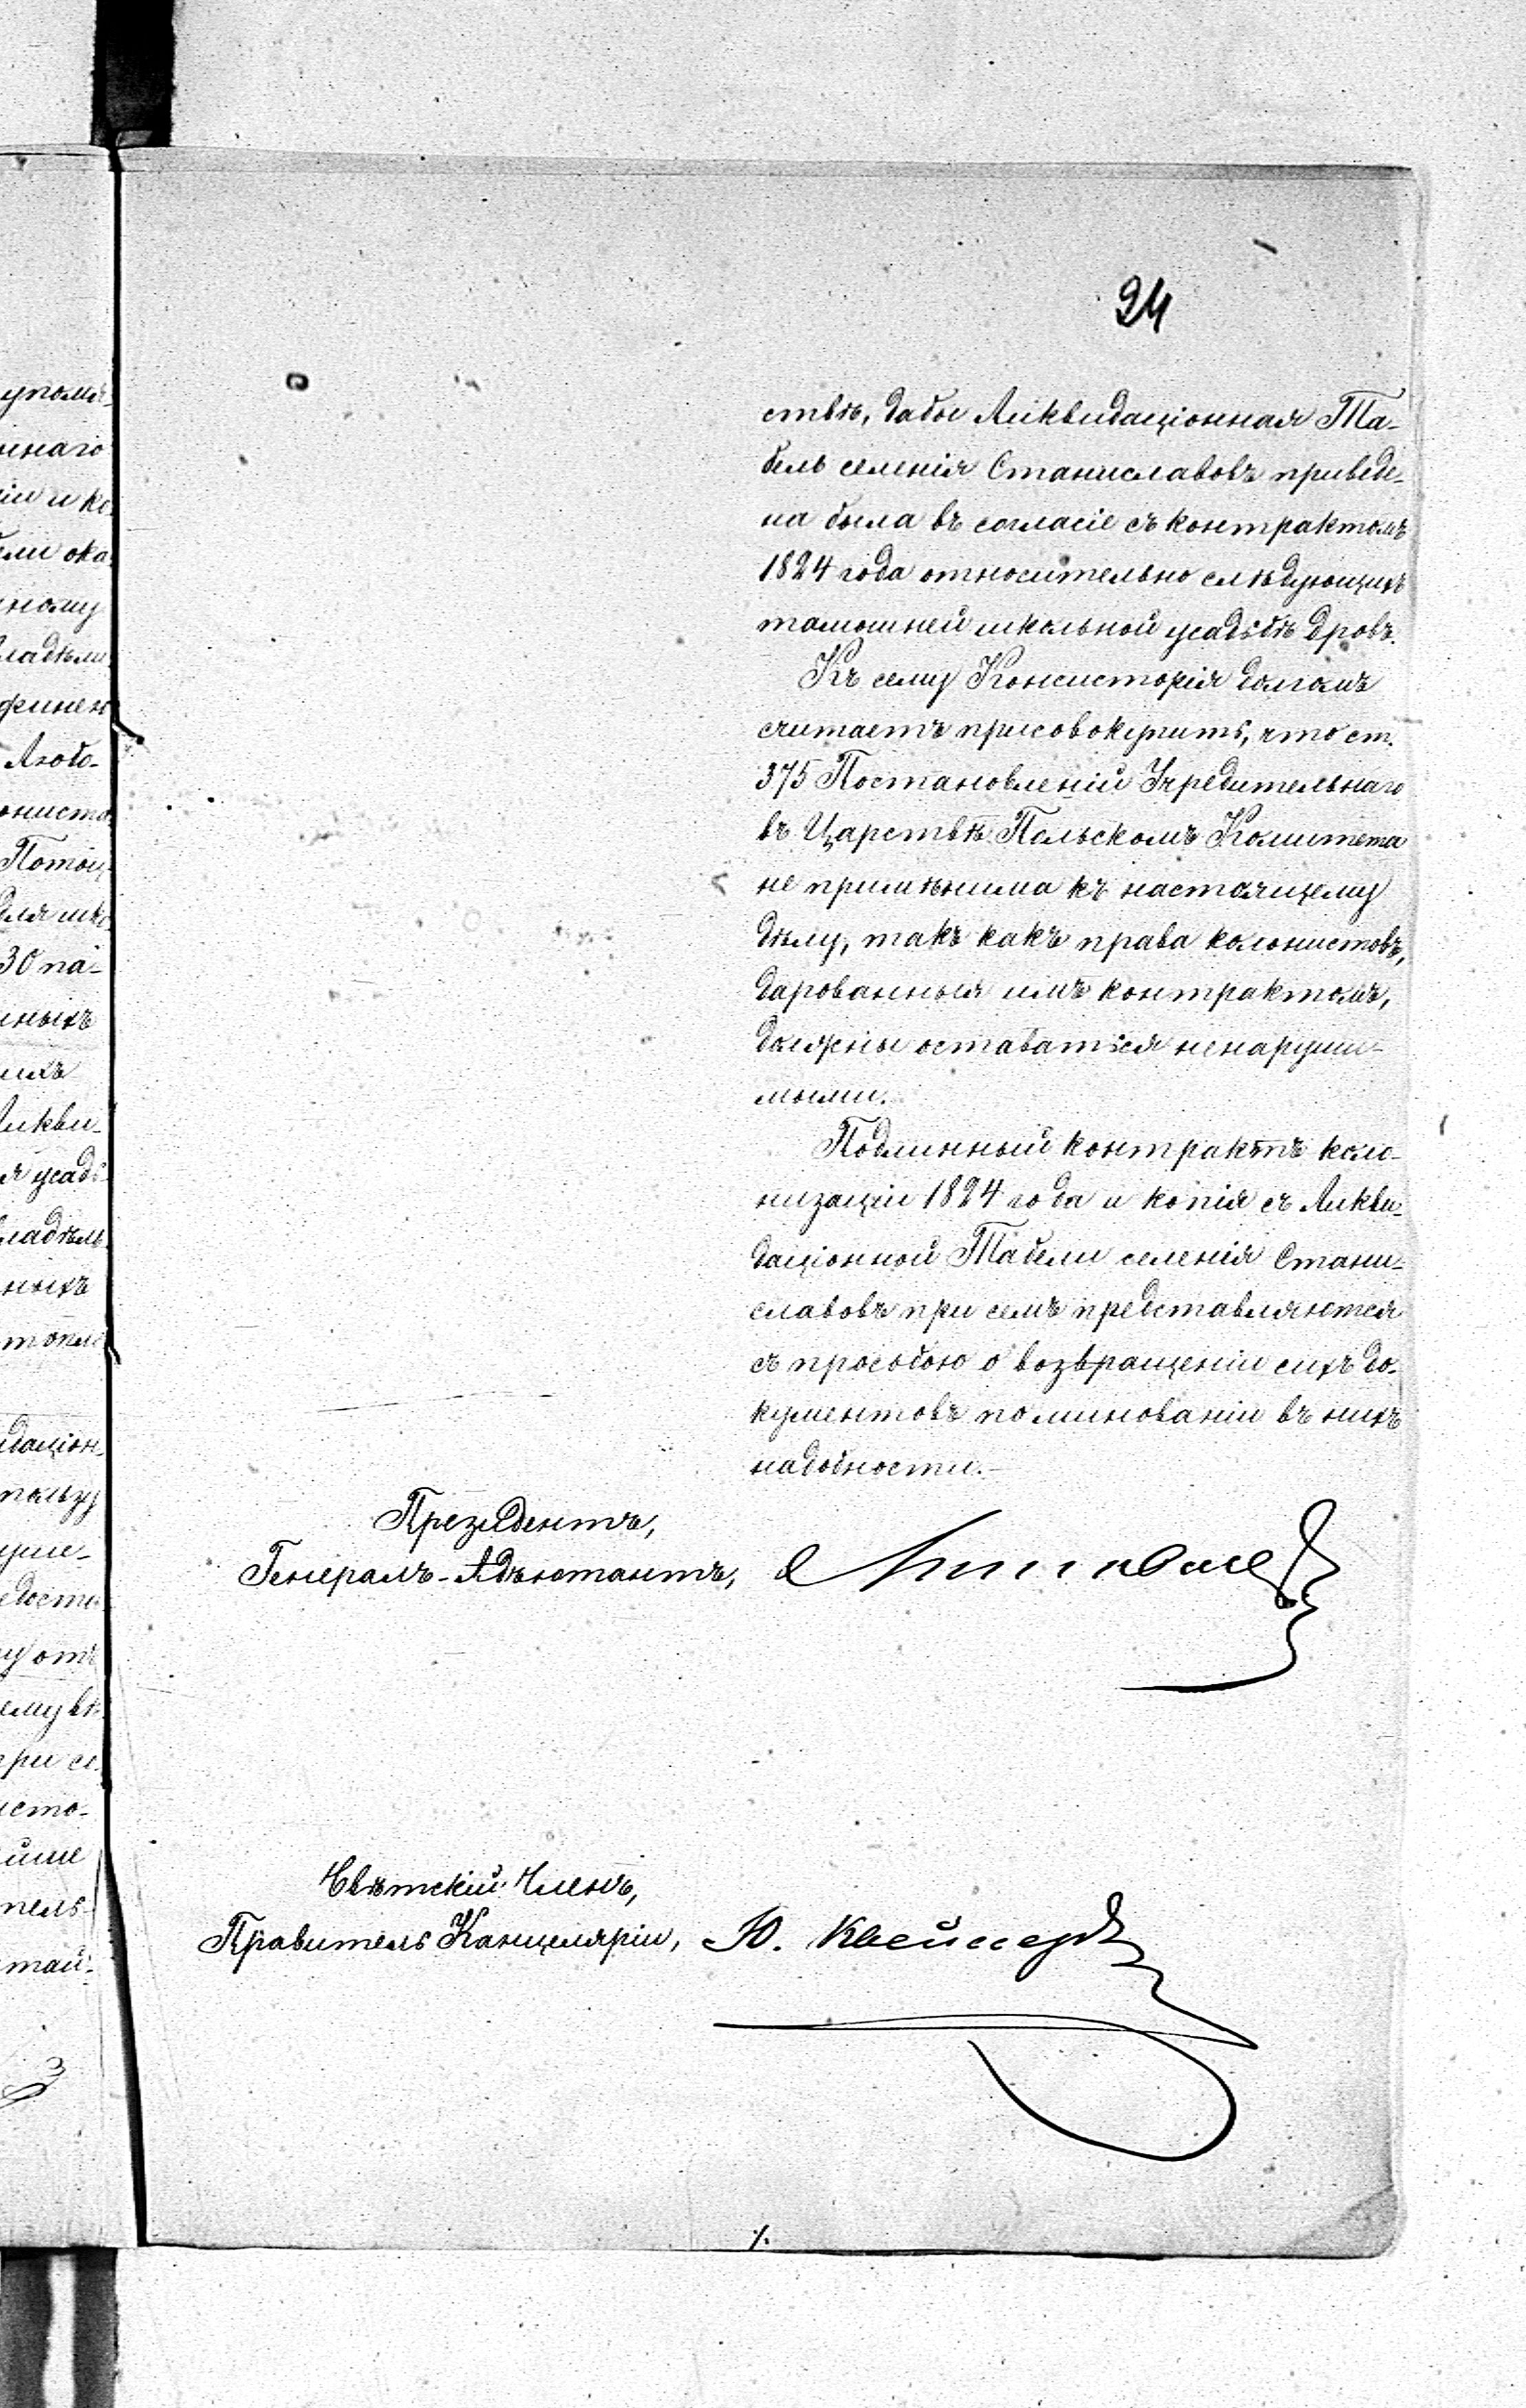 24
ствѣ, дабы Ликвидаціонная Та-
бель селенія Станиславовъ приведе-
на была въ согласіе съ контрактомъ
1824 года относительно слѣдующихъ
тамошней школьной усадьбѣ дровъ.
Къ сему Консисторія долгомъ
считаетъ присовокупить, что ст.
375 Постановленій Учредительнаго
въ Царствѣ Польскомъ Комитета
не примѣнима къ настоящему
дѣлу, такъ какъ права колонистовъ,
дарованныя имъ контрактомъ,
должны оставаться ненаруши-
мыми.
Подлинный контрактъ коло-
низаціи 1824 года и копія съ Ликви-
даціонной Табели селенія Стани-
славовъ при семъ представляются
съ просьбою о возвращеніи сихъ до-
кументовъ по минованіи въ нихъ
надобности.-
Президентъ,
Генералъ-Адъютантъ,
Свѣтскій Членъ,
Правитель Канцеляріи, Ю.
упомя-
ннаго
іи и ко
ели ока
ному
владѣли
финен
Любо-
онисто
Потоц-
для шко
30 па-
нныхъ
ихъ
Ликви-
я усадь-
владѣль
ныхъ
топли
идаціон-
пользу
уше-
у отъ
ему вѣ
при се
исто-
ейше
тель-
тай-